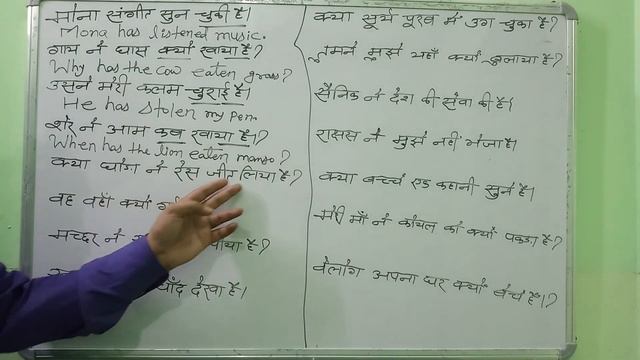 मोना संगीत सुन चुकी है।
Mona has listened music.
गाय ने घास क्यों खाया है?
Why has the cow eaten grass?
उसने मेरी कलम चुराई है।
He has stolen my pen.
शेर ने आम कब खाया है?
When has the lion eaten mango?
क्या घोंगे ने रेस जीत लिया है?
वह वहाँ क्यों
मच्छर ने
चाँद देखा है।
क्या सूर्य पूरब में उग चुका है?
तुमने मुझे यहाँ क्यों बुलाया है?
सैनिक ने देश की सेवा की है।
राक्षस ने मुझे नहीं भेजा है।
क्या बच्चे एड कहानी सुने है।
मेरी माँ ने कोयल को क्यों पकड़ा है?
वेलोग अपना घर क्यों बेचे है।?